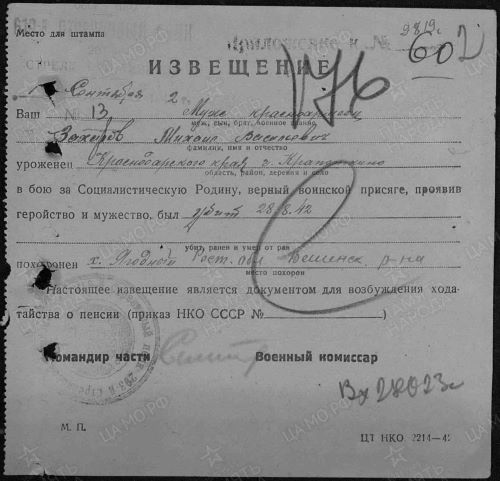 Место для штампа
Приложение к №
9819
602
ИЗВЕЩЕНИЕ
Сентября 2
№ 13
Ваш Муж красноармеец
муж, сын, брат, военное звание
Захаров Михаил
фамилия, имя и отчество
уроженец Краснодарского края г. Кропоткино
область, район, деревня и село
в бою за Социалистическую Родину, верный воинской присяге, проявив
геройство и мужество, был убит 28.8.42
убит, ранен и умер от ран
похоронен х. Ягодный Рост. обл Вешенск. р-на
место похорон
Настоящее извещение является документом для возбуждения хода-
тайства о пенсии (приказ НКО СССР № )
Командир части Военный комиссар
Вх 28023с
М. П.
ЦТ НКО 2214—42